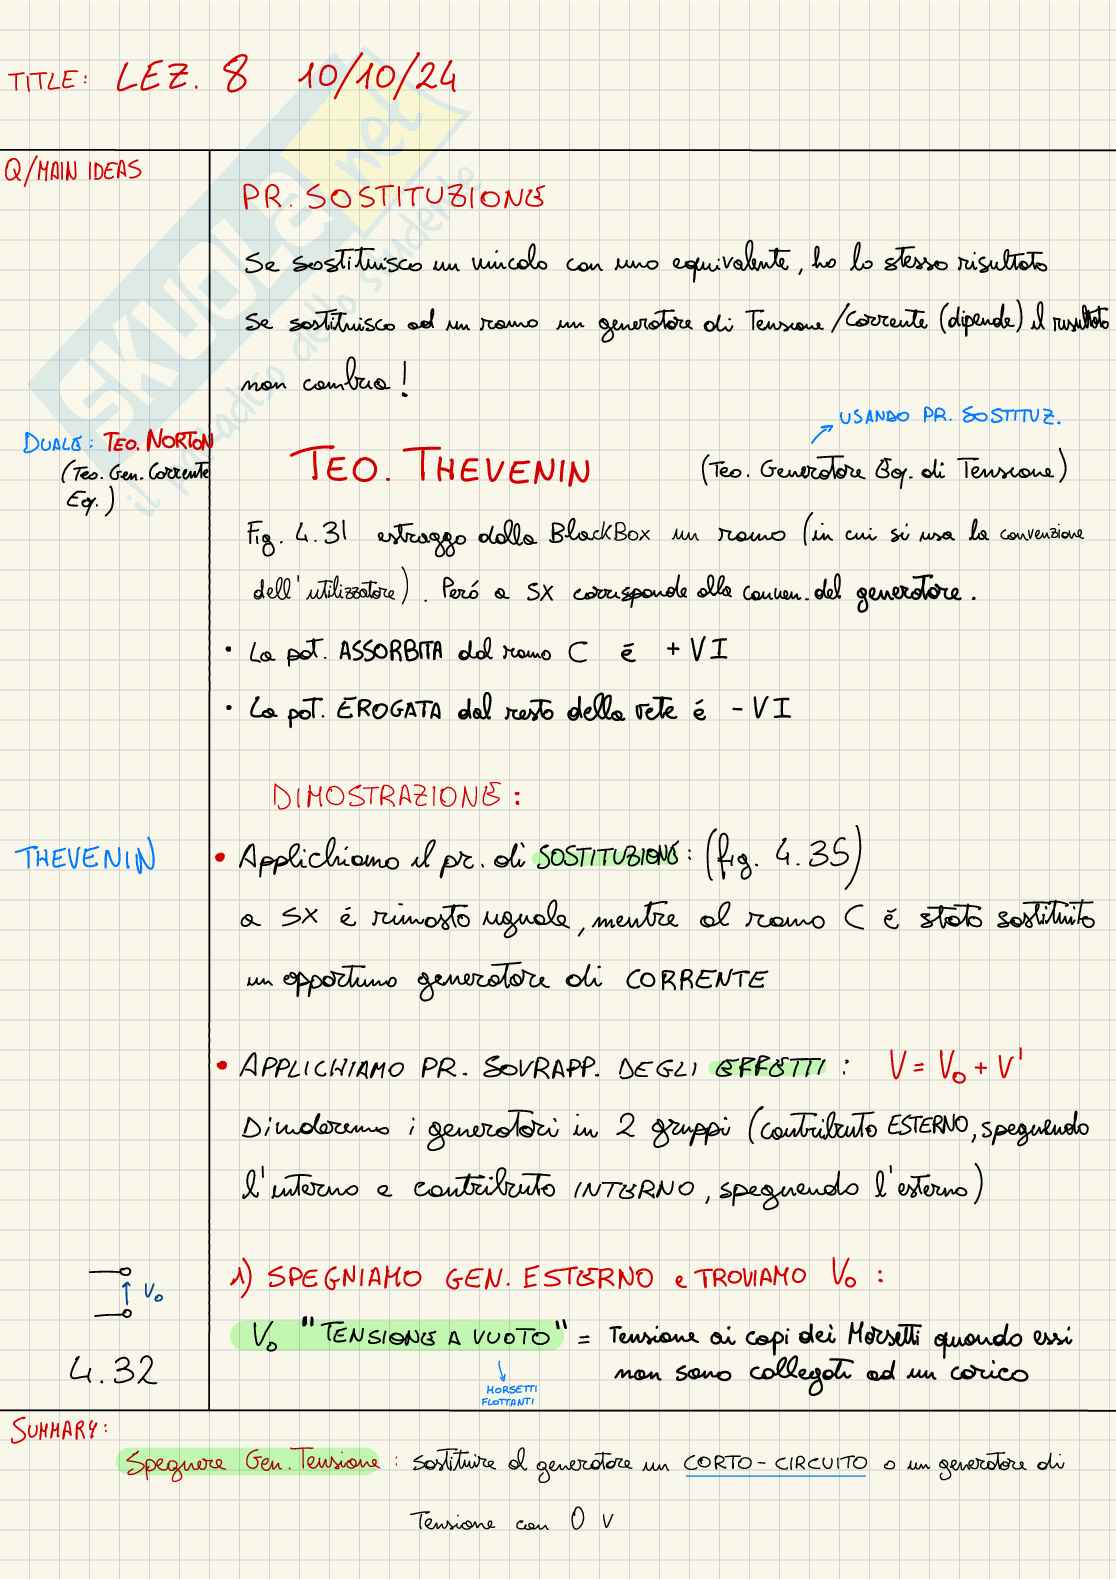 TITLE: LEZ. 8 10/10/24
Q/MAIN IDEAS
PR. SOSTITUZIONE
Se sostituisco un vincolo con uno equivalente, ho lo stesso risultato
Se sostituisco ad un ramo un generatore di Tensione/Corrente (dipende) il risultato
non cambia!
USANDO PR. SOSTITUZ.
DUALE: TEO. NORTON
(Teo. Gen. Corrente
Eq.)
TEO. THEVENIN
(Teo. Generatore Eq. di Tensione)
Fig. 4.31 estraggo dalla BlackBox un ramo (in cui si usa la convenzione
dell'utilizzatore). Peró a SX corrisponde alla conven. del generatore.
• La pot. ASSORBITA dal ramo C é + VI
• La pot. EROGATA dal resto della rete é - VI
DIMOSTRAZIONE:
THEVENIN
• Applichiamo il pr. di SOSTITUZIONE: (fig. 4.35)
a SX é rimasto uguale, mentre al ramo C é stato sostituito
un opportuno generatore di CORRENTE
• APPLICHIAMO PR. SOVRAPP. DEGLI EFFETTI: V = V₀ + V'
Divideremo i generatori in 2 gruppi (contributo ESTERNO, spegnendo
l'interno e contributo INTERNO, spegnendo l'esterno)
1) SPEGNIAMO GEN. ESTERNO e TROVIAMO V₀:
V₀
V₀ "TENSIONE A VUOTO" = Tensione ai capi dei Morsetti quando essi
non sono collegati ad un carico
4.32
MORSETTI
FLOTTANTI
SUMMARY:
Spegnere Gen. Tensione: sostituire al generatore un CORTO-CIRCUITO o un generatore di
Tensione con 0 V
SKUOLA.net
il paradiso dello studente